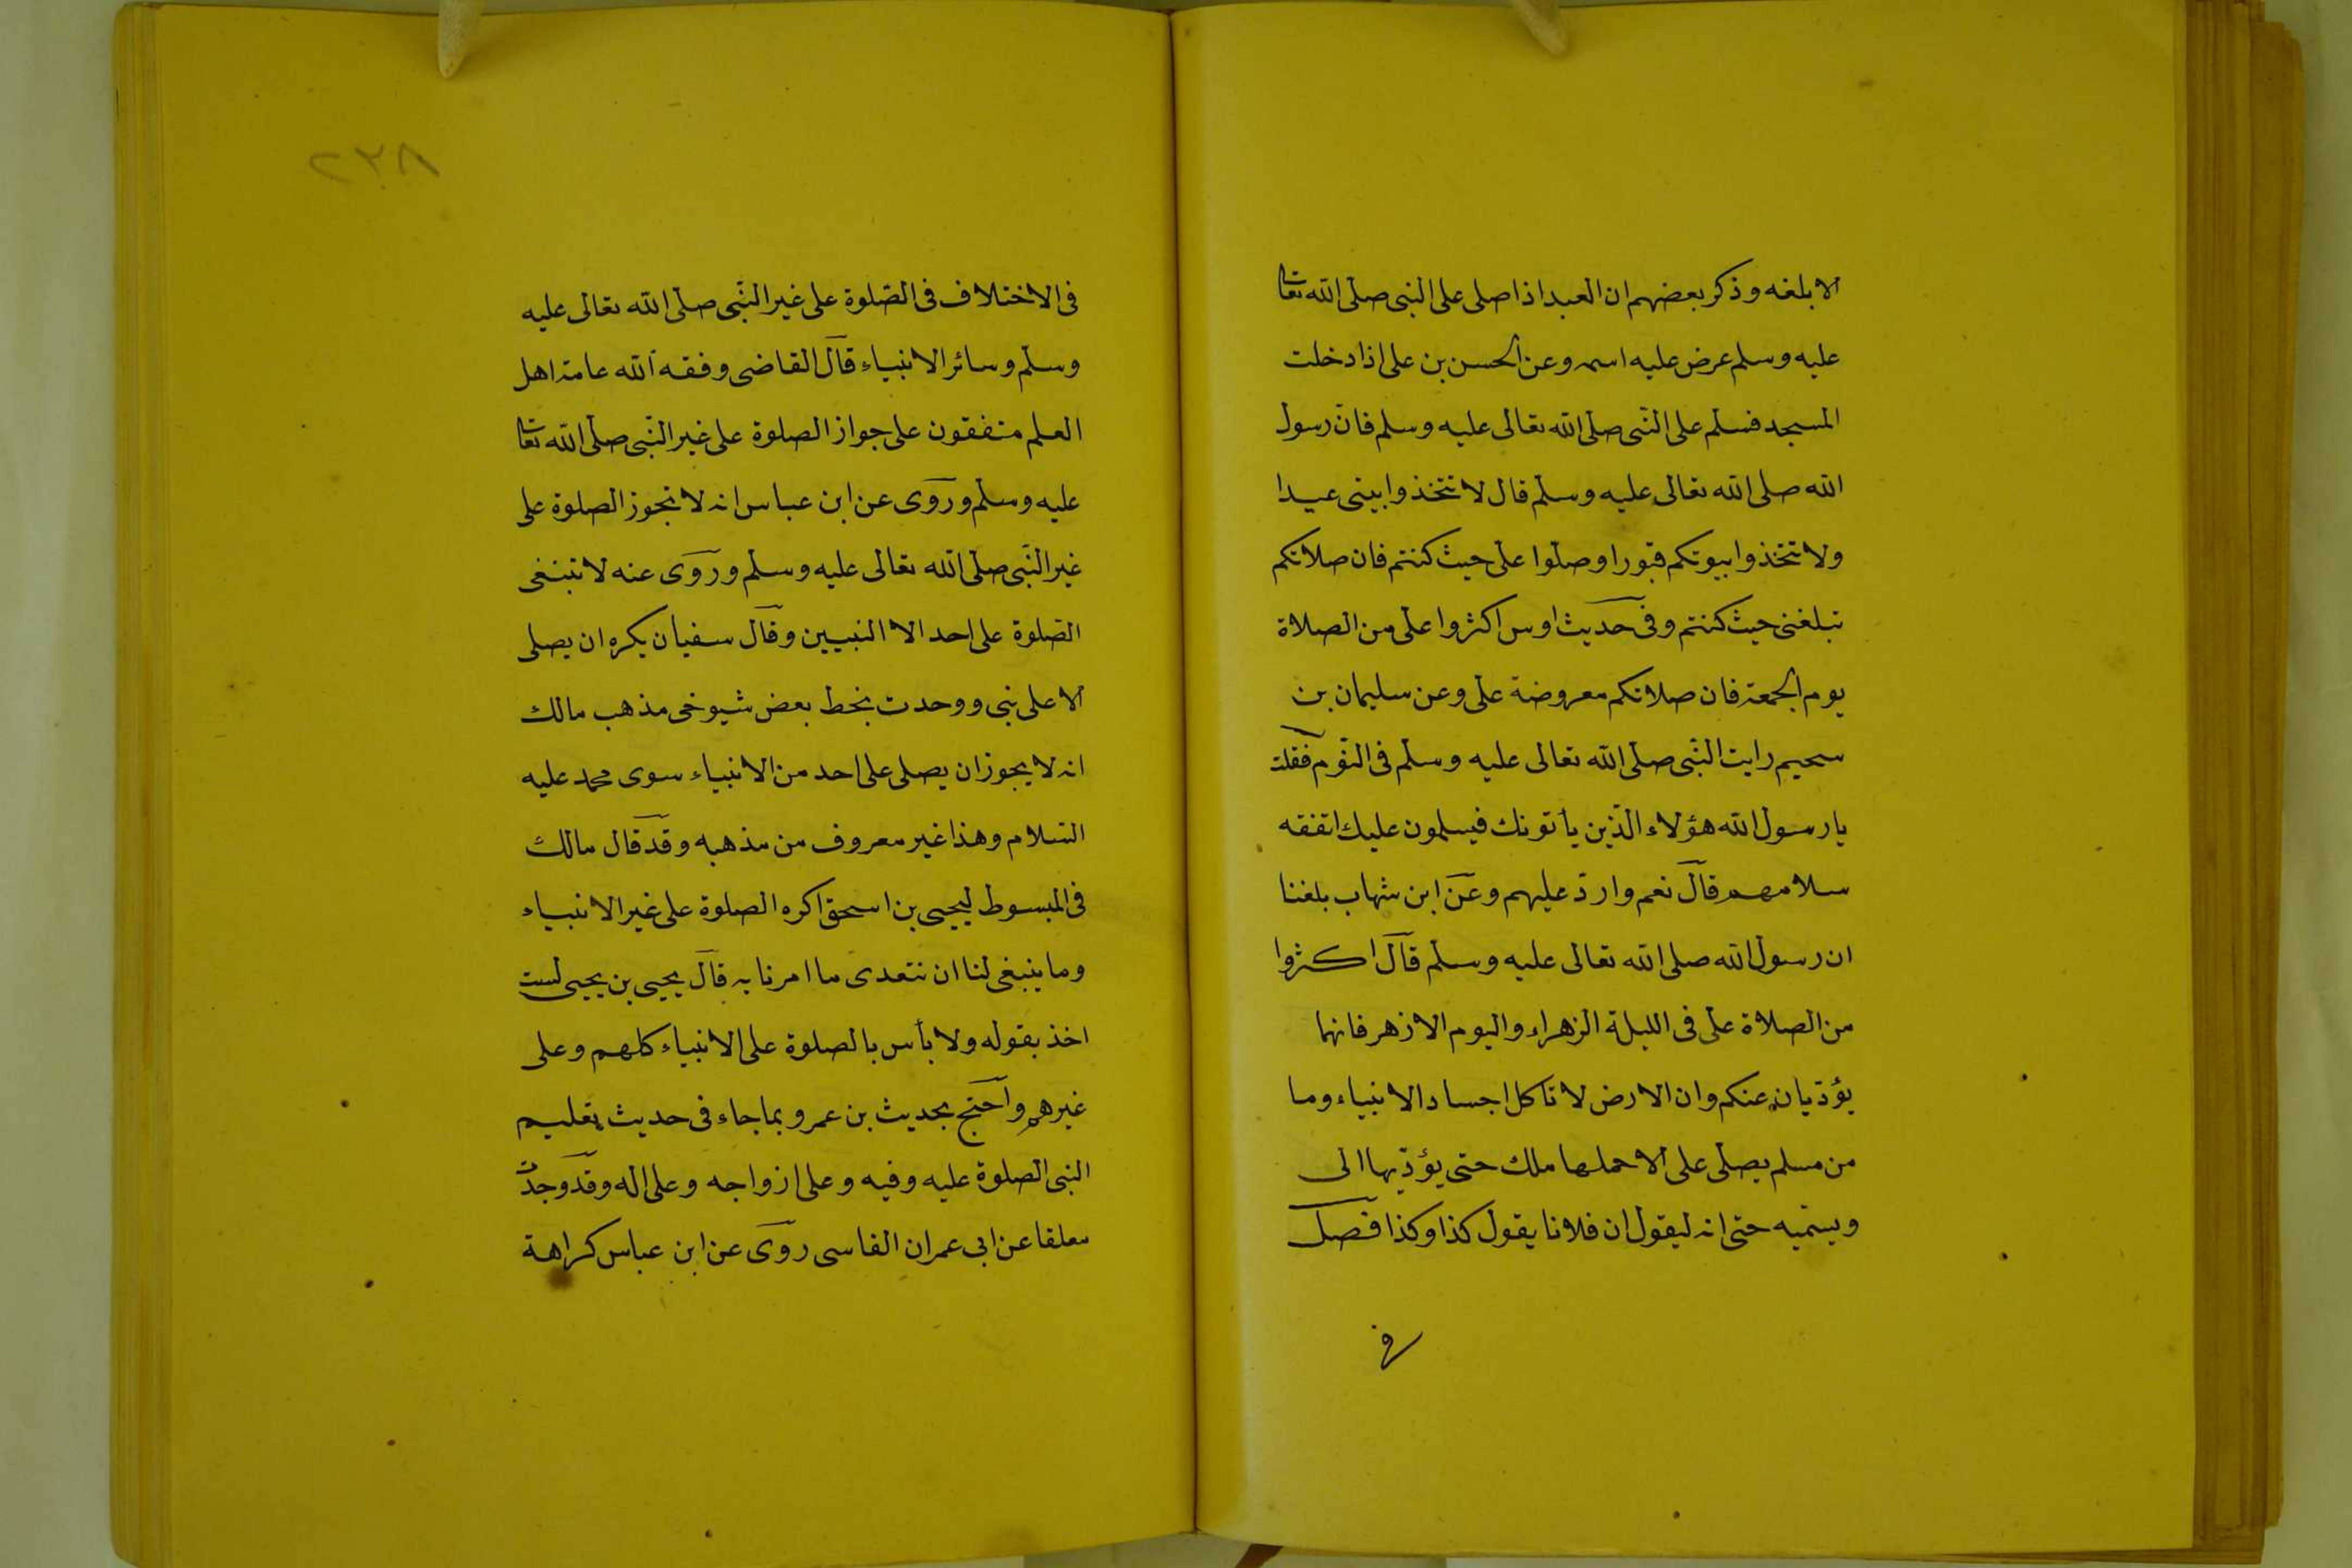 الا بلغه وذكر بعضهم ان العبد اذا صلى على النبى صلى الله تعالى
عليه وسلم عرض عليه اسمه وعن الحسن بن على اذا دخلت
المسجد فسلم على النّبى صلى الله تعالى عليه وسلم فان رسول
الله صلى الله تعالى عليه وسلم قال لا تتخذوا بيتى عيدا
ولا تتخذوا بيوتكم قبورا وصلوا علىّ حيث كنتم فان صلاتكم
تبلغنى حيث كنتم وفى حديث اوس اكثروا علىّ من الصلاة
يوم الجمعة فان صلاتكم معروضة علىّ وعن سليمان بن
سحيم رايت النّبى صلى الله تعالى عليه وسلم فى النّوم فقلت
يا رسول الله هؤلاء الّذين يأتونك فيسلمون عليك اتفقه
سلامهم قال نعم واردّ عليهم وعن ابن شهاب بلغنا
ان رسول الله صلى الله تعالى عليه وسلم قال اكثروا
من الصلاة علىّ فى الليلة الزهراء واليوم الازهر فانهما
يؤدّيان عنكم وان الارض لا تاكل اجساد الانبياء وما
من مسلم يصلى علىّ الا حملها ملك حتى يؤدّيها الى
ويسمّيه حتى انه ليقول ان فلانا يقول كذا وكذا فصل
فى
٢٣٨
فى الاختلاف فى الصّلوة على غير النّبى صلى الله تعالى عليه
وسلم وسائر الانبياء قال القاضى وفقه الله عامة اهل
العلم متفقون على جواز الصلوة على غير النّبى صلى الله تعالى
عليه وسلم وروى عن ابن عباس انه لا تجوز الصلوة على
غير النّبى صلى الله تعالى عليه وسلم وروى عنه لا تبنغى
الصّلوة على احد الا النبيين وقال سفيان يكره ان يصلى
الا على نبى ووجدت بخط بعض شيوخى مذهب مالك
انه لا يجوز ان يصلى على احد من الانبياء سوى محمد عليه
السّلام وهذا غير معروف من مذهبه وقد قال مالك
فى المبسوط ليحيى بن اسحق اكره الصلوة على غير الانبياء
وما ينبغى لنا ان نتعدى ما امرنا به قال يحيى بن يحيى لست
اخذ بقوله ولا بأس بالصلوة على الانبياء كلهم وعلى
غيرهم واحتج بحديث بن عمر وبما جاء فى حديث تعليم
النبى الصلوة عليه وفيه وعلى ازواجه وعلى اله وقد وجدت
معلقا عن ابى عمران الفاسى روى عن ابن عباس كراهة